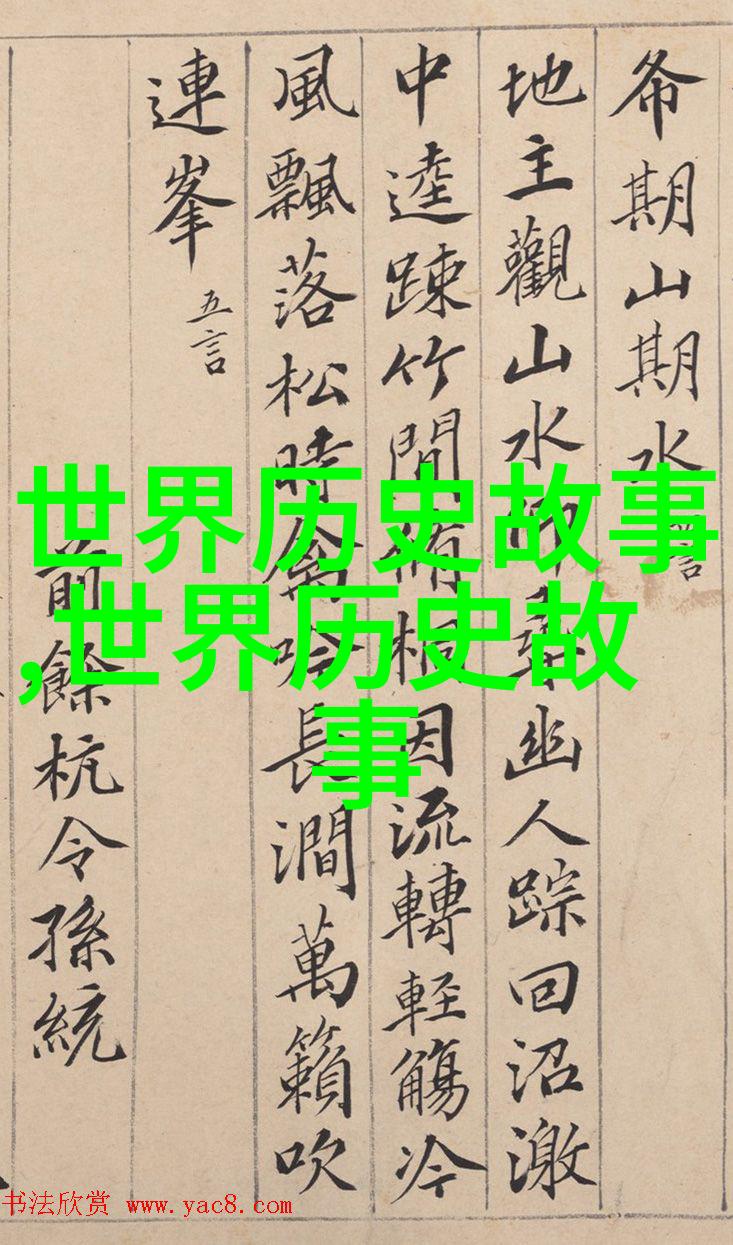 希期山期水 言
地主觀山水仰尋幽人踪回沼激
中逵踈竹間脩桐因流轉輕觴冷
風飄落松時禽吟長澗萬籟吹
連峯 五言
前餘杭令孫統
世界历史故事
,世界历史故
事
书法欣赏 www.yac8.com